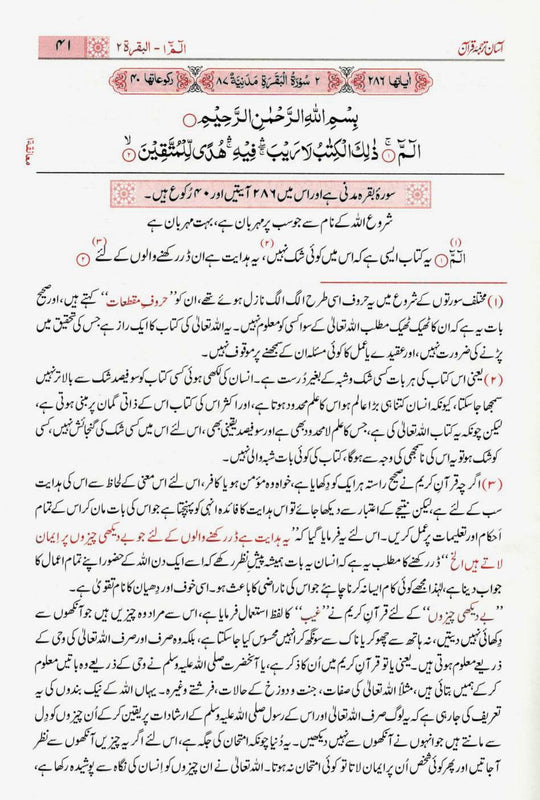 آسان ترجمۂ قرآن الٓمّٓ ۱ - البقرۃ ۲ ۴۱
اٰیاتها ۲۸۶ ۲ سُوْرَۃُ الْبَقَرَۃِ مَدَنِیَّۃٌ ۸۷ رکوعاتها ۴۰
بِسْمِ اللّٰہِ الرَّحْمٰنِ الرَّحِیْمِ
الٓمّٓ ۚ﴿۱﴾ ذٰلِکَ الْکِتٰبُ لَا رَیْبَ ۚۖۛ فِیْہِ ۚۛ ہُدًی لِّلْمُتَّقِیْنَ ۙ﴿۲﴾
معانقۃ ۱
سورۂ بقرہ مدنی ہے اور اس میں ۲۸۶ آیتیں اور ۴۰ رُکوع ہیں۔
شروع اللہ کے نام سے جو سب پر مہربان ہے، بہت مہربان ہے
الٓمّٓ (۱) ﴿۱﴾ یہ کتاب ایسی ہے کہ اس میں کوئی شک نہیں، (۲) یہ ہدایت ہے ان ڈر رکھنے والوں کے لئے (۳) ﴿۲﴾
(۱) مختلف سورتوں کے شروع میں یہ حروف اسی طرح الگ الگ نازل ہوئے تھے، ان کو ’’حروفِ مقطعات‘‘ کہتے ہیں، اور صحیح
بات یہ ہے کہ ان کا ٹھیک ٹھیک مطلب اللہ تعالیٰ کے سوا کسی کو معلوم نہیں۔ یہ اللہ تعالیٰ کی کتاب کا ایک راز ہے جس کی تحقیق میں
پڑنے کی ضرورت نہیں، اور عقیدے یا عمل کا کوئی مسئلہ ان کے سمجھنے پر موقوف نہیں۔
(۲) یعنی اس کتاب کی ہر بات کسی شک و شبہ کے بغیر دُرست ہے۔ انسان کی لکھی ہوئی کسی کتاب کو سو فیصد شک سے بالاتر نہیں
سمجھا جا سکتا، کیونکہ انسان کتنا ہی بڑا عالم ہو اس کا علم محدود ہوتا ہے، اور اکثر اس کی کتاب اس کے ذاتی گمان پر مبنی ہوتی ہے،
لیکن چونکہ یہ کتاب اللہ تعالیٰ کی ہے، جس کا علم لا محدود بھی ہے اور سو فیصد یقینی بھی، اس لئے اس میں کسی شک کی گنجائش نہیں، کسی
کو شک ہو تو یہ اس کی نا سمجھی کی وجہ سے ہوگا، کتاب کی کوئی بات شبہ والی نہیں۔
(۳) اگرچہ قرآنِ کریم نے صحیح راستہ ہر ایک کو دِکھایا ہے، خواہ وہ مؤمن ہو یا کافر، اس لئے اس معنی کے لحاظ سے اس کی ہدایت
سب کے لئے ہے، لیکن نتیجے کے اعتبار سے دیکھا جائے تو اس ہدایت کا فائدہ انہی کو پہنچتا ہے جو اس کی بات مان کر اس کے تمام
اَحکام اور تعلیمات پر عمل کریں۔ اس لئے یہ فرمایا گیا کہ ’’یہ ہدایت ہے ڈر رکھنے والوں کے لئے جو بے دیکھی چیزوں پر ایمان
لاتے ہیں الخ‘‘ ڈر رکھنے کا مطلب یہ ہے کہ انسان یہ بات ہمیشہ پیشِ نظر رکھے کہ اسے ایک دن اللہ کے حضور اپنے تمام اعمال کا
جواب دینا ہے، لہٰذا مجھے کوئی کام ایسا نہ کرنا چاہئے جو اس کی ناراضی کا باعث ہو۔ اسی خوف اور دِھیان کا نام تقویٰ ہے۔
’’بے دیکھی چیزوں‘‘ کے لئے قرآنِ کریم نے ’’غیب‘‘ کا لفظ استعمال فرمایا ہے، اس سے مراد وہ چیزیں ہیں جو آنکھوں سے
دِکھائی نہیں دیتیں، نہ ہاتھ سے چھو کر یا ناک سے سونگھ کر انہیں محسوس کیا جا سکتا ہے، بلکہ وہ صرف اور صرف اللہ تعالیٰ کی وحی کے
ذریعے معلوم ہوتی ہیں۔ یعنی یا تو قرآنِ کریم میں اُن کا ذکر ہے، یا آنحضرت صلی اللہ علیہ وسلم نے وحی کے ذریعے وہ باتیں معلوم
کر کے ہمیں بتائی ہیں، مثلاً اللہ تعالیٰ کی صفات، جنت و دوزخ کے حالات، فرشتے وغیرہ۔ یہاں اللہ کے نیک بندوں کی یہ
تعریف کی جا رہی ہے کہ یہ لوگ صرف اللہ تعالیٰ اور اس کے رسول صلی اللہ علیہ وسلم کے ارشادات پر یقین کر کے اُن چیزوں کو دِل
سے مانتے ہیں جو انہوں نے آنکھوں سے نہیں دیکھیں۔ یہ دُنیا چونکہ امتحان کی جگہ ہے، اس لئے اگر یہ چیزیں آنکھوں سے نظر
آ جاتیں اور پھر کوئی شخص اُن پر ایمان لاتا تو کوئی امتحان نہ ہوتا۔ اللہ تعالیٰ نے ان چیزوں کو انسان کی نگاہ سے پوشیدہ رکھا ہے،